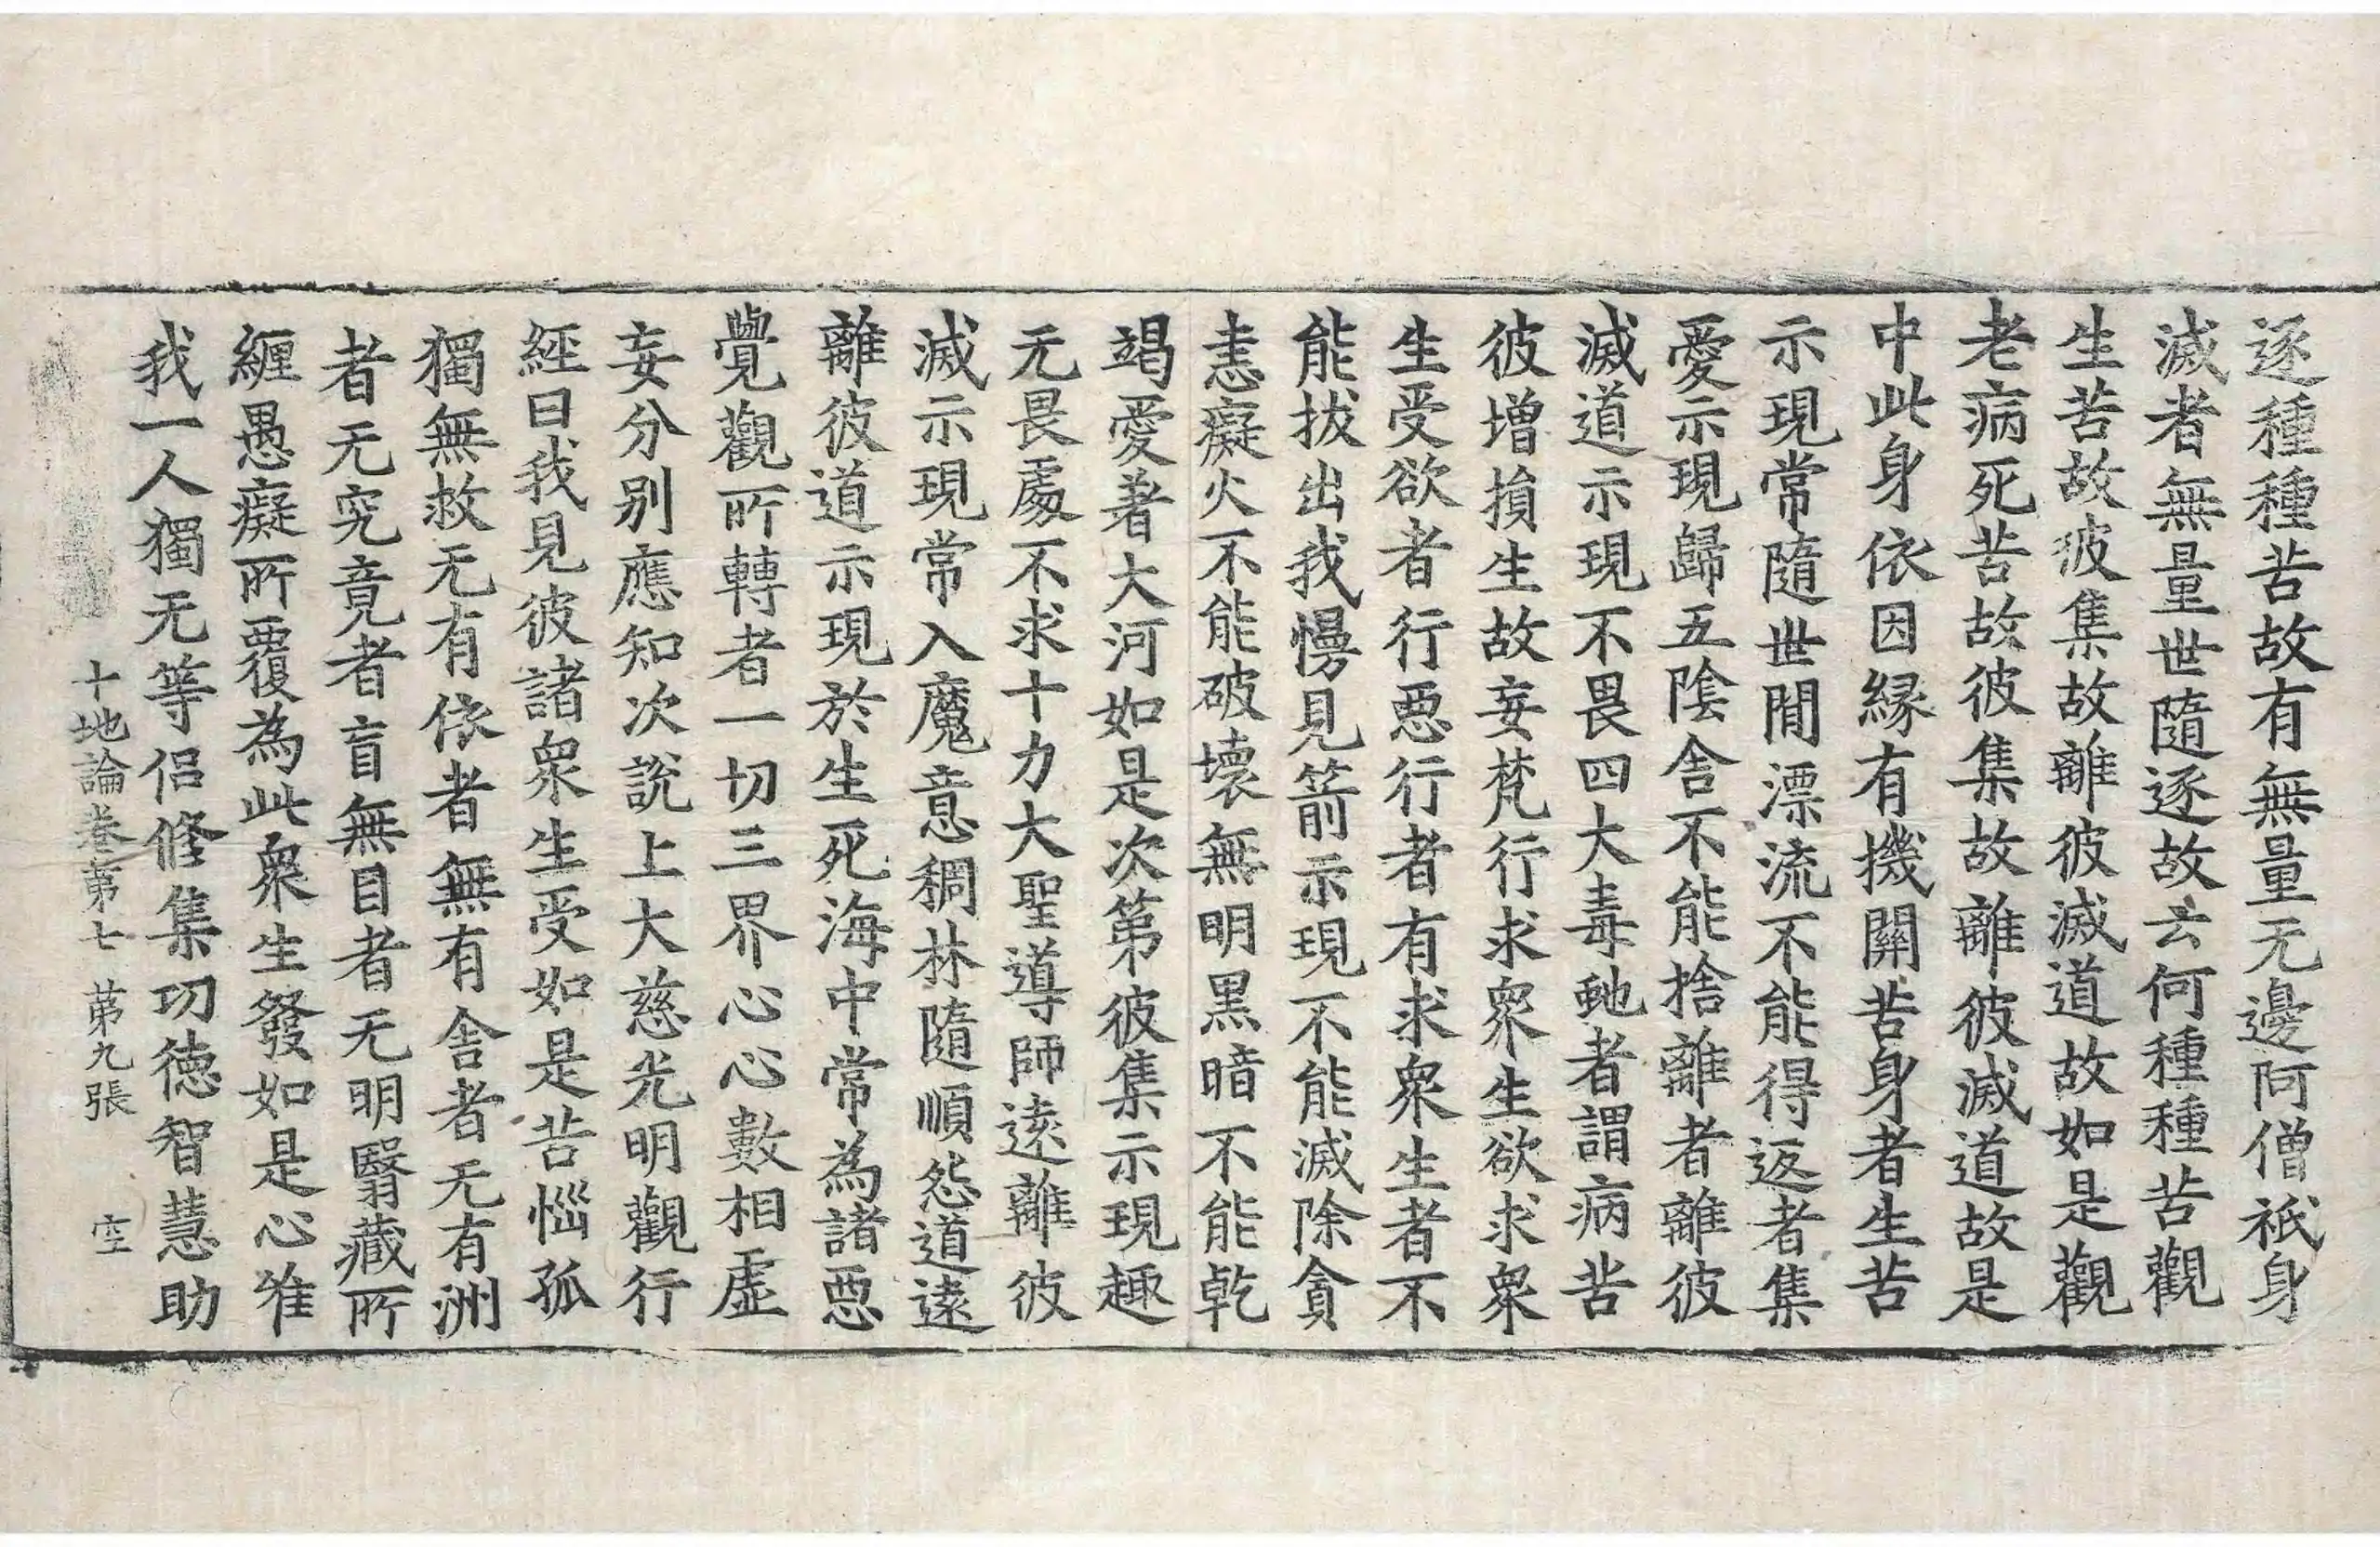 逐種種苦故有無量无邊阿僧祇身
滅者無量世隨逐故云何種種苦觀
生苦故彼集故離彼滅道故如是觀
老病死苦故彼集故離彼滅道故是
中此身依因緣有機關苦身者生苦
示現常隨世間漂流不能得返者集
愛示現歸五陰舍不能捨離者離彼
滅道示現不畏四大毒虵者謂病苦
彼增損生故妄梵行求衆生欲求衆
生受欲者行惡行者有求衆生者不
能拔出我慢見箭示現不能滅除貪
恚癡火不能破壞無明黑暗不能乾
竭愛著大河如是次第彼集示現趣
无畏處不求十力大聖導師遠離彼
滅示現常入魔意稠林隨順怨道遠
離彼道示現於生死海中常為諸惡
覺觀所轉者一切三界心心數相虛
妄分別應知次說上大慈光明觀行
經曰我見彼諸衆生受如是苦惱孤
獨無救无有依者無有舍者无有洲
者无究竟者盲無目者无明翳藏所
纏愚癡所覆為此衆生發如是心唯
我一人獨无等侶修集功德智慧助
十地論卷第七 第九張 空